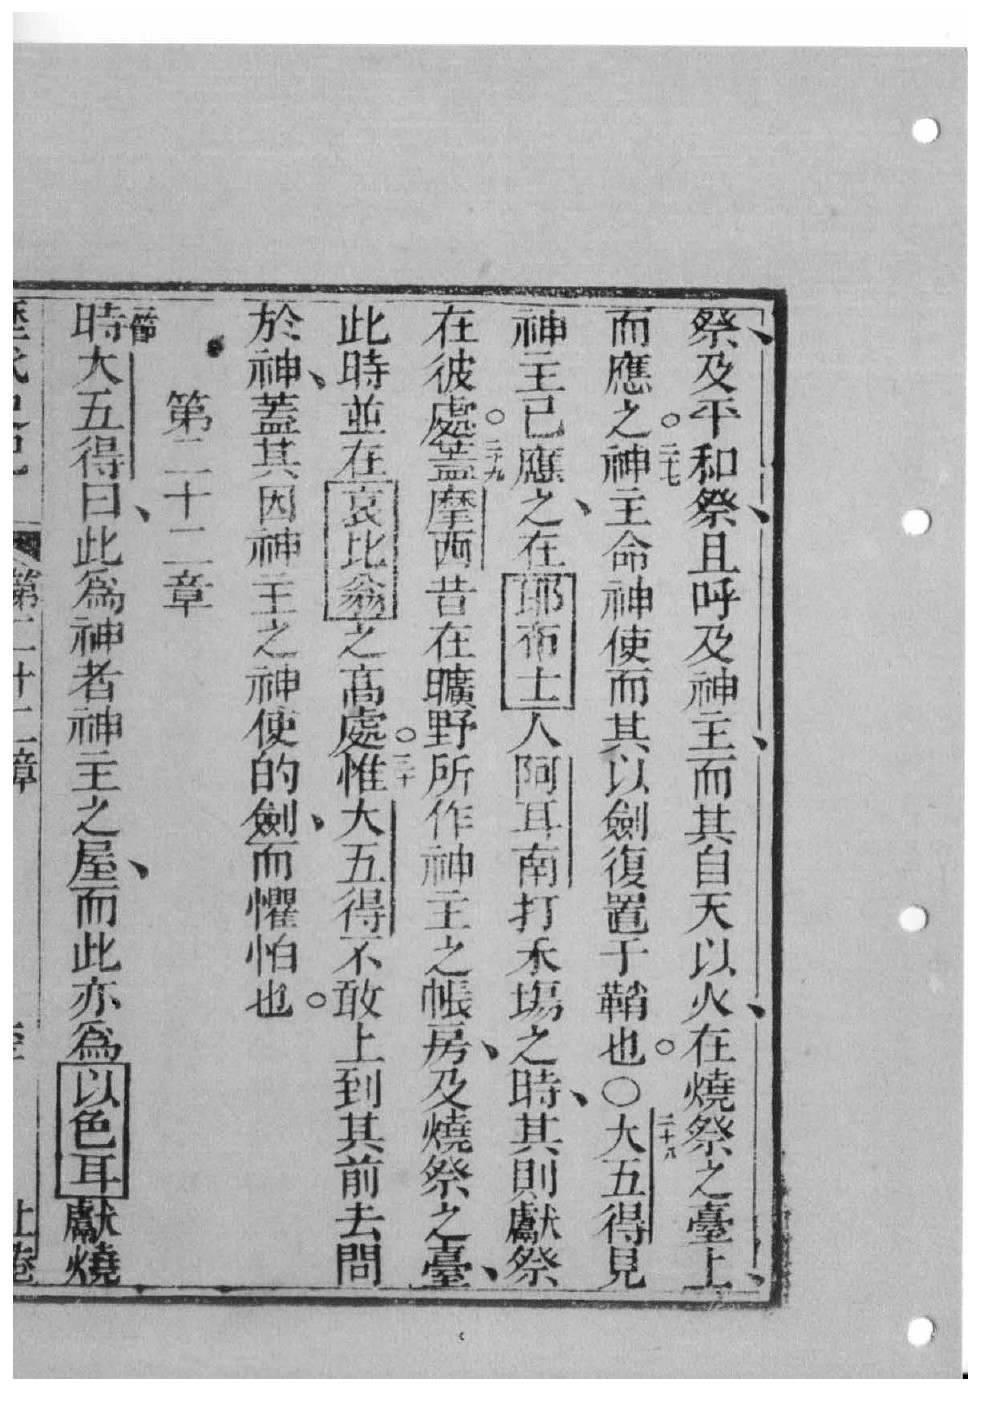 祭及平和祭、且呼及神主、而其自天以火、在燒祭之臺上、
而應之。二十七神主命神使而其以劍復置于鞘也。○二十八大五得見
神主已應之、在耶布士人阿耳南打禾場之時、其則獻祭
在彼處。二十九蓋摩西昔在曠野所作神主之帳房、及燒祭之臺、
此時並在哀比翁之高處。三十惟大五得不敢上到其前去問
於神、蓋其因神主之神使的劍、而懼怕也。
第二十二章
一節時大五得曰、此為神者神主之屋、而此亦為以色耳獻燒
第二十二章